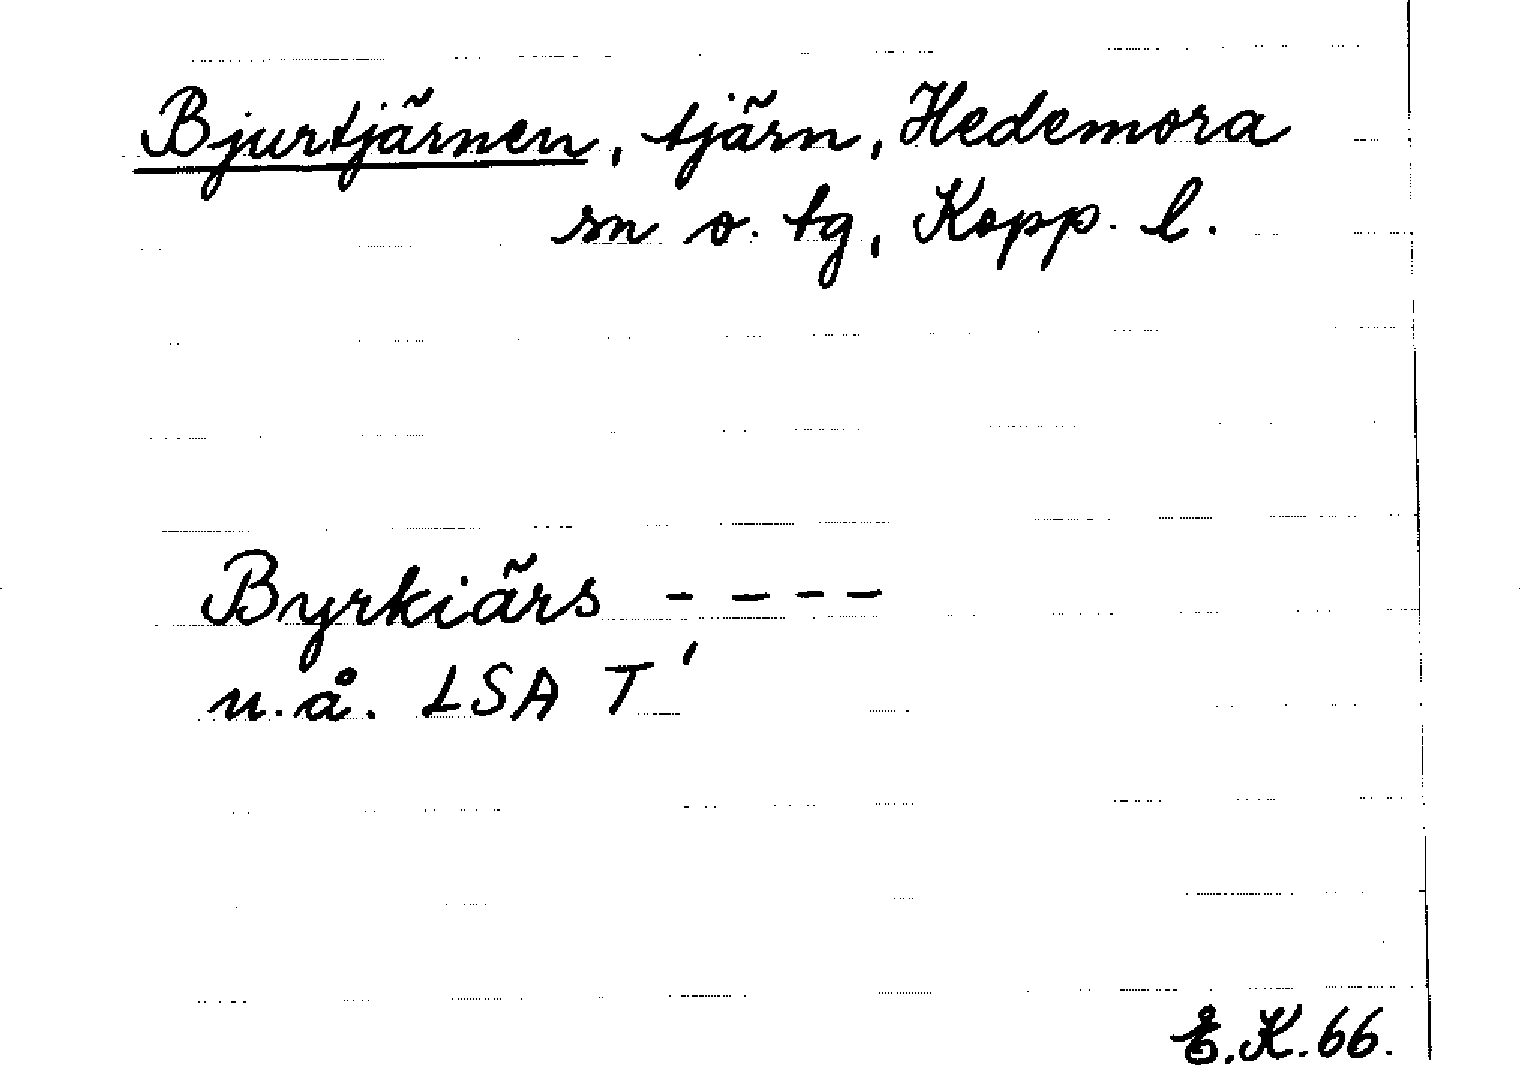 Bjurtjärnen, tjärn, Hedemora
sn o. tg, Kopp. l.
Byrkiärs - - - -
u.å. LSA T'
E.K.66.